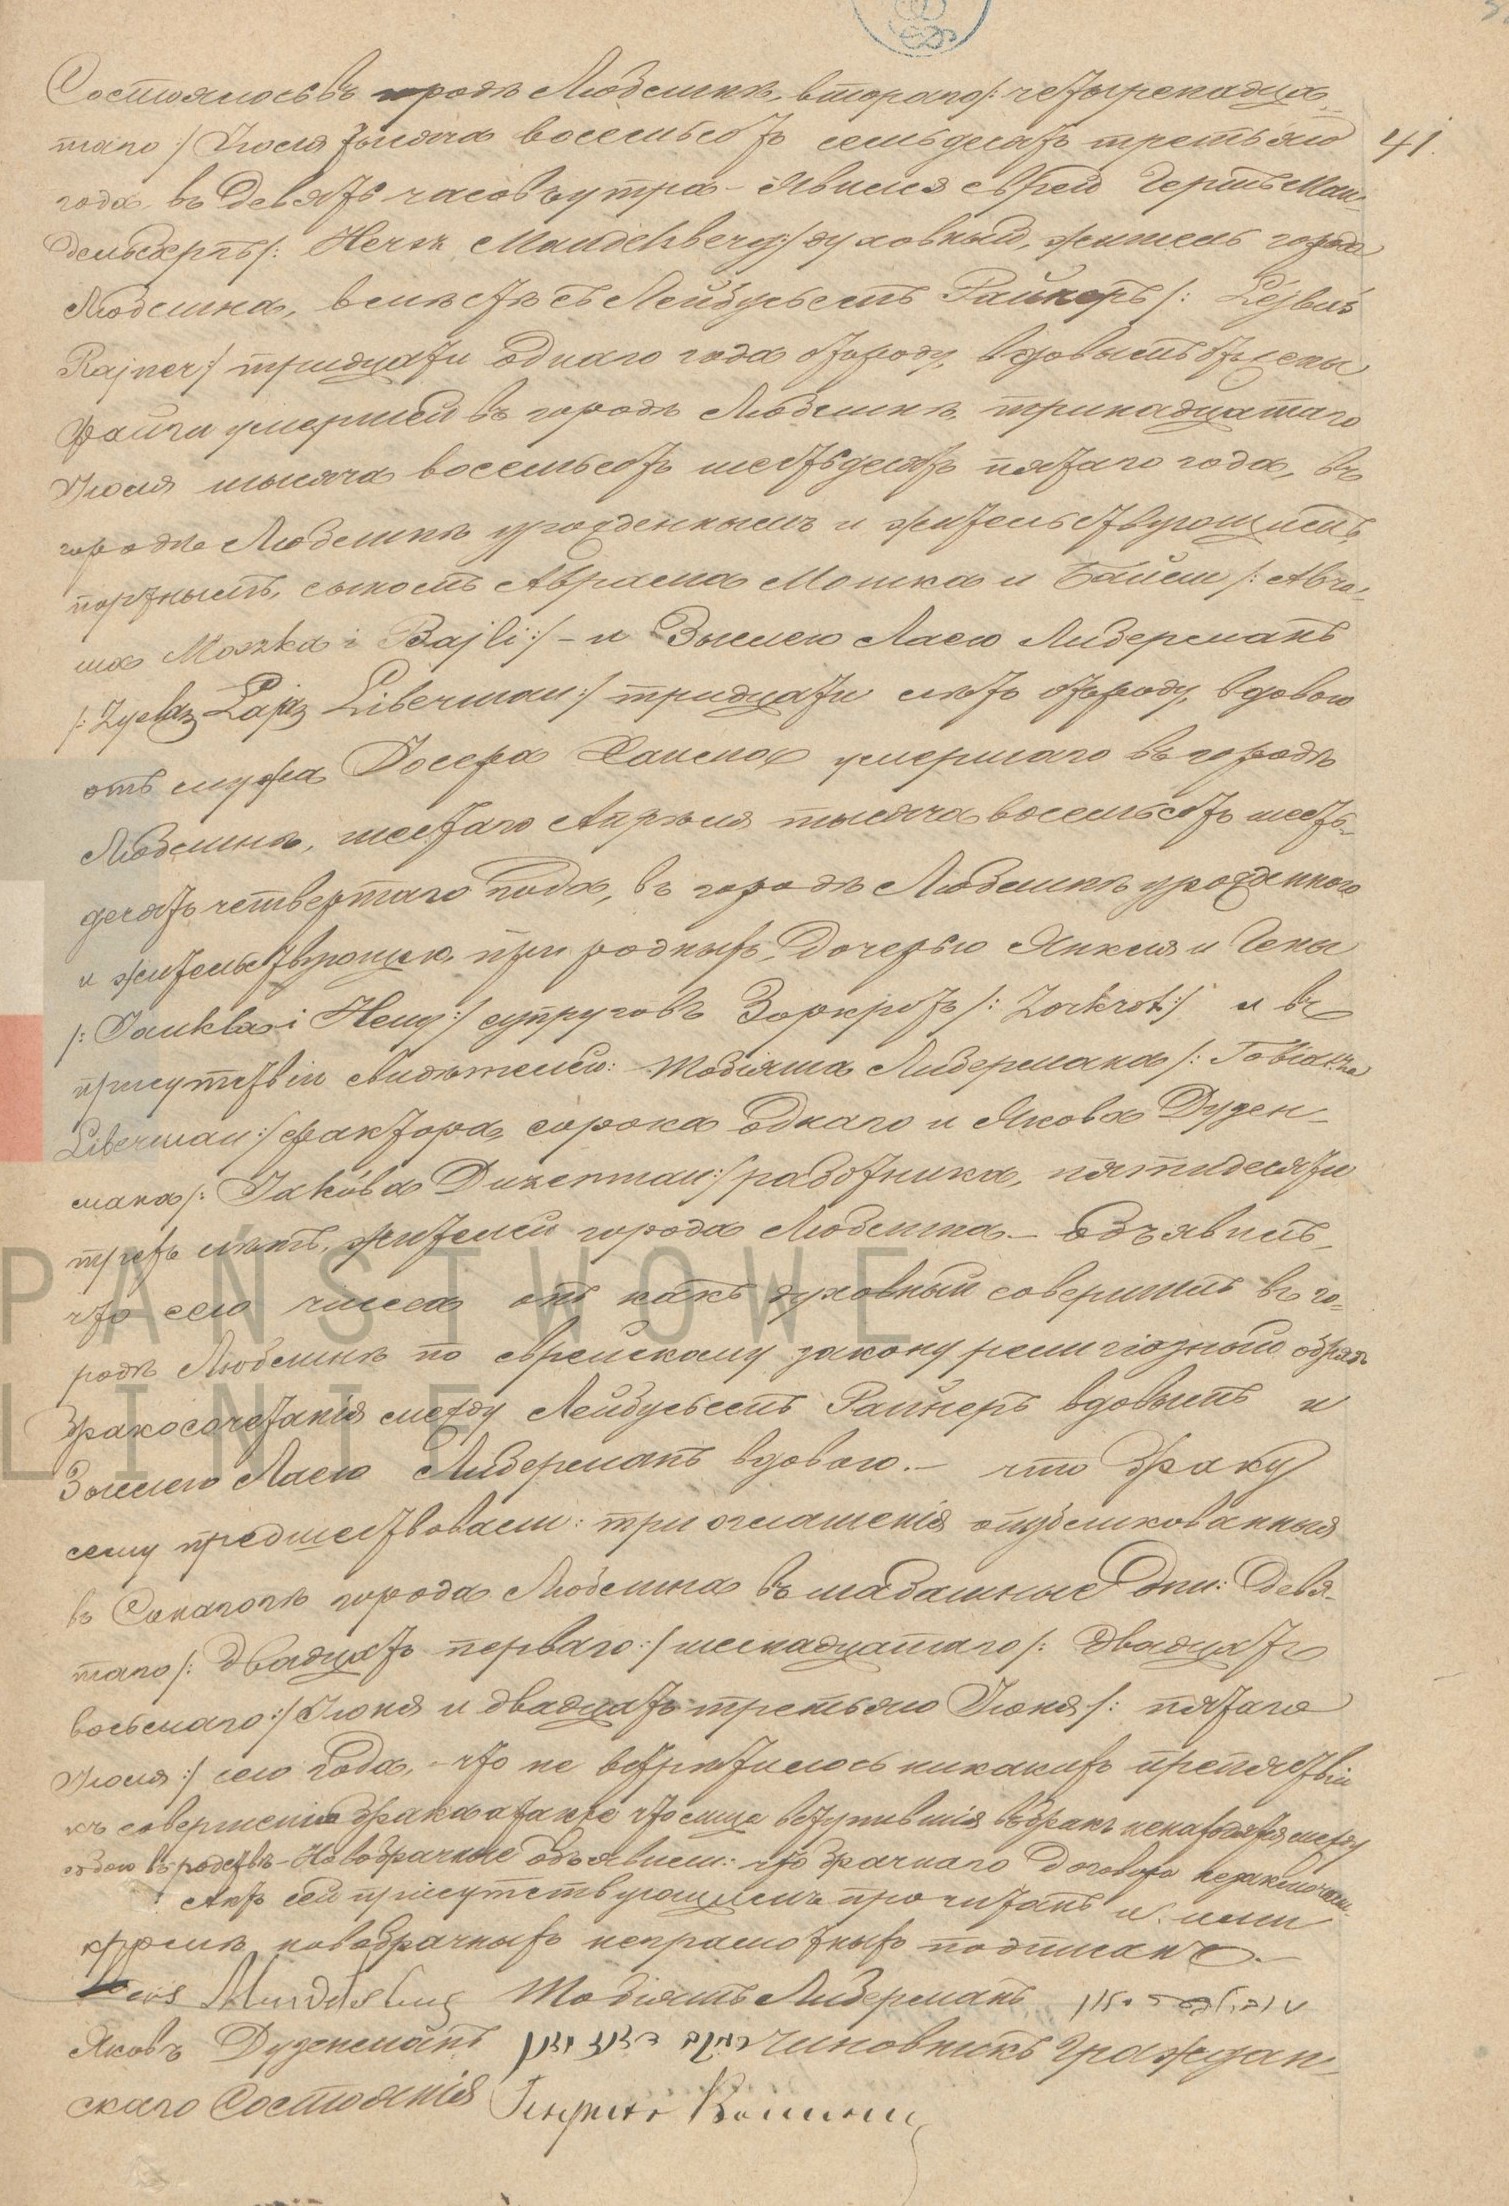 Состоялось въ городѣ Люблинѣ, втораго /: четыренадца-
таго :/ Іюля тысяча восемьсотъ семьдесятъ третьяго
41.
года въ девять часовъ утра – Явился Еврей Гершъ Ман-
дельбергъ /: Hersz Mandelsberg :/ духовный, житель города
Люблина, вмѣстѣ съ Лейбусьемъ Райнеръ /: Lejbuś
Rajner :/ тридцати одного года отъ роду, вдовымъ отъ жены
Файги умершей въ городѣ Люблинѣ, тринадцатаго
Іюля тысяча восемьсотъ шестьдесятъ пятаго года, въ
городѣ Люблинѣ урожденнымъ и жительствующимъ,
портнымъ, сыномъ Абрама Мошка и Байли /: Abra-
ma Moszka i Bajli :/ – и Зыслею Лаею Либерманъ
/: Zyslą Łają Liberman :/ тридцати лѣтъ отъ роду, вдовою
отъ мужа Іосефа умершаго въ городѣ
Люблинѣ, шестаго Апрѣля тысяча восемьсотъ шесть-
десятъ четвертаго года, въ городѣ Люблинѣ урожденною
и жительствующею при родныхъ, дочерью Янкля и Гены
/: Jankla i Heny :/ супруговъ Зоркротъ /: Zorkrot :/ и въ
присутствіи свидѣтелей: Тобіяша Либермана /: Tobiasza
Liberman :/ фактора, сорока одного и Якова Дузен-
мана /: Jakóba Duzenman :/ работника, пятидесяти
трехъ лѣтъ, жителей города Люблина – объявилъ,
что сего числа онъ какъ духовный совершилъ въ го-
родѣ Люблинѣ по еврейскому закону религіозный обрядъ
бракосочетанія между Лейбусьемъ Райнеръ вдовымъ и
Зыслею Лаею Либерманъ вдовою. – что браку
сему предшествовали: три оглашенія опубликованныя
въ Синагогѣ города Люблина въ шабашные дни: девя-
таго /: двадцать перваго :/ шеснадцатаго /: двадцать
восьмаго :/ Іюня и двадцать третьяго Іюня /: пятаго
Іюля :/ сего года, – что не встрѣтилось никакихъ препятствій
къ совершенію брака а также что лица вступившія въ бракъ ненаходятся между
собою въ родствѣ – Новобрачные объявили: что брачнаго договора незаключали.
Актъ сей присутствующимъ прочитанъ и ими
кромѣ новобрачныхъ неграмотныхъ подписанъ. –
Hers Mandelsberg Тобіяшъ Либерманъ
Яковъ Дузенманъ Чиновникъ Граждан-
скаго Состоянія